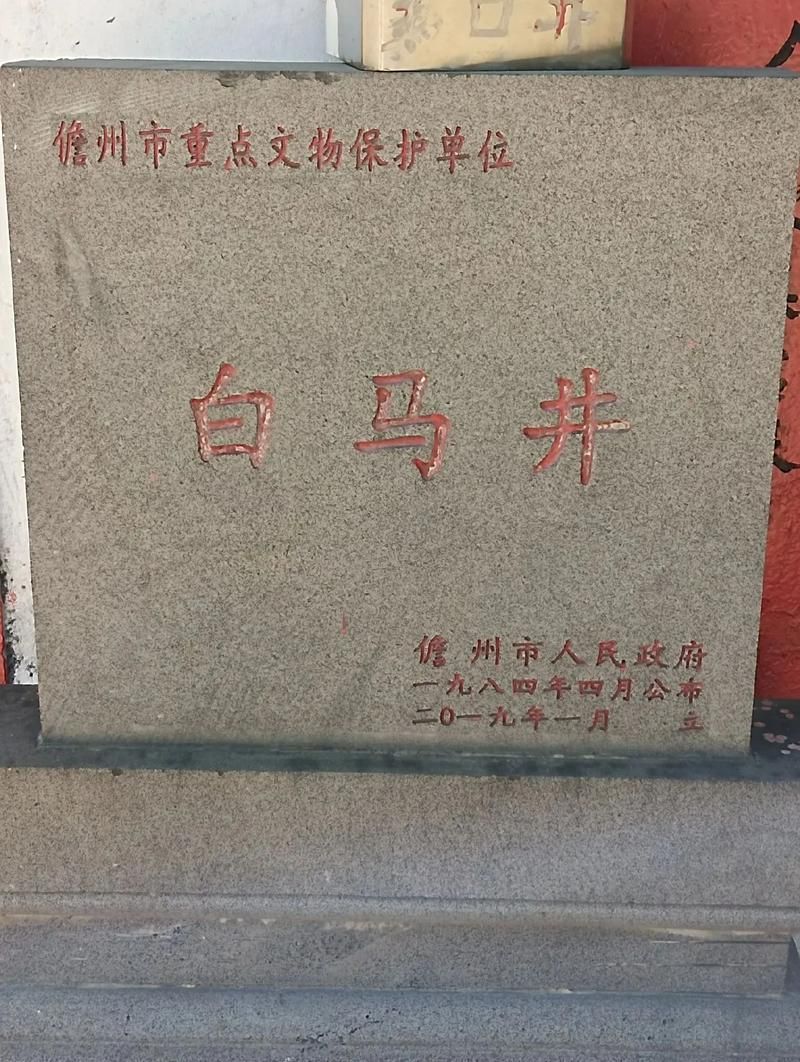 儋州市重点文物保护单位
白马井
儋州市人民政府
一九八四年四月公布
二0一九年一月 立